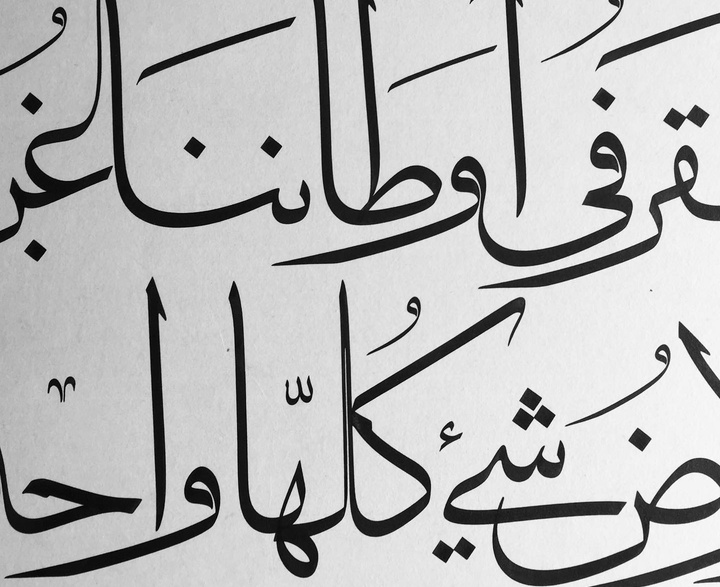 قر في اوطاننا غر
ضُ شيئ كُلّها واحد